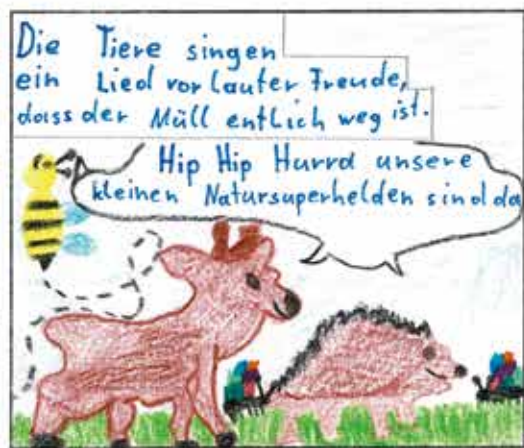 Die Tiere singen
ein Lied vor lauter Freude,
dass der Müll entlich weg ist.
Hip Hip Hurra unsere
kleinen Natursuperhelden sind da